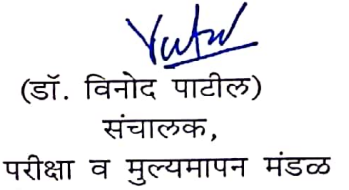 (डॉ. विनोद पाटील)
संचालक,
परीक्षा व मुल्यमापन मंडळ